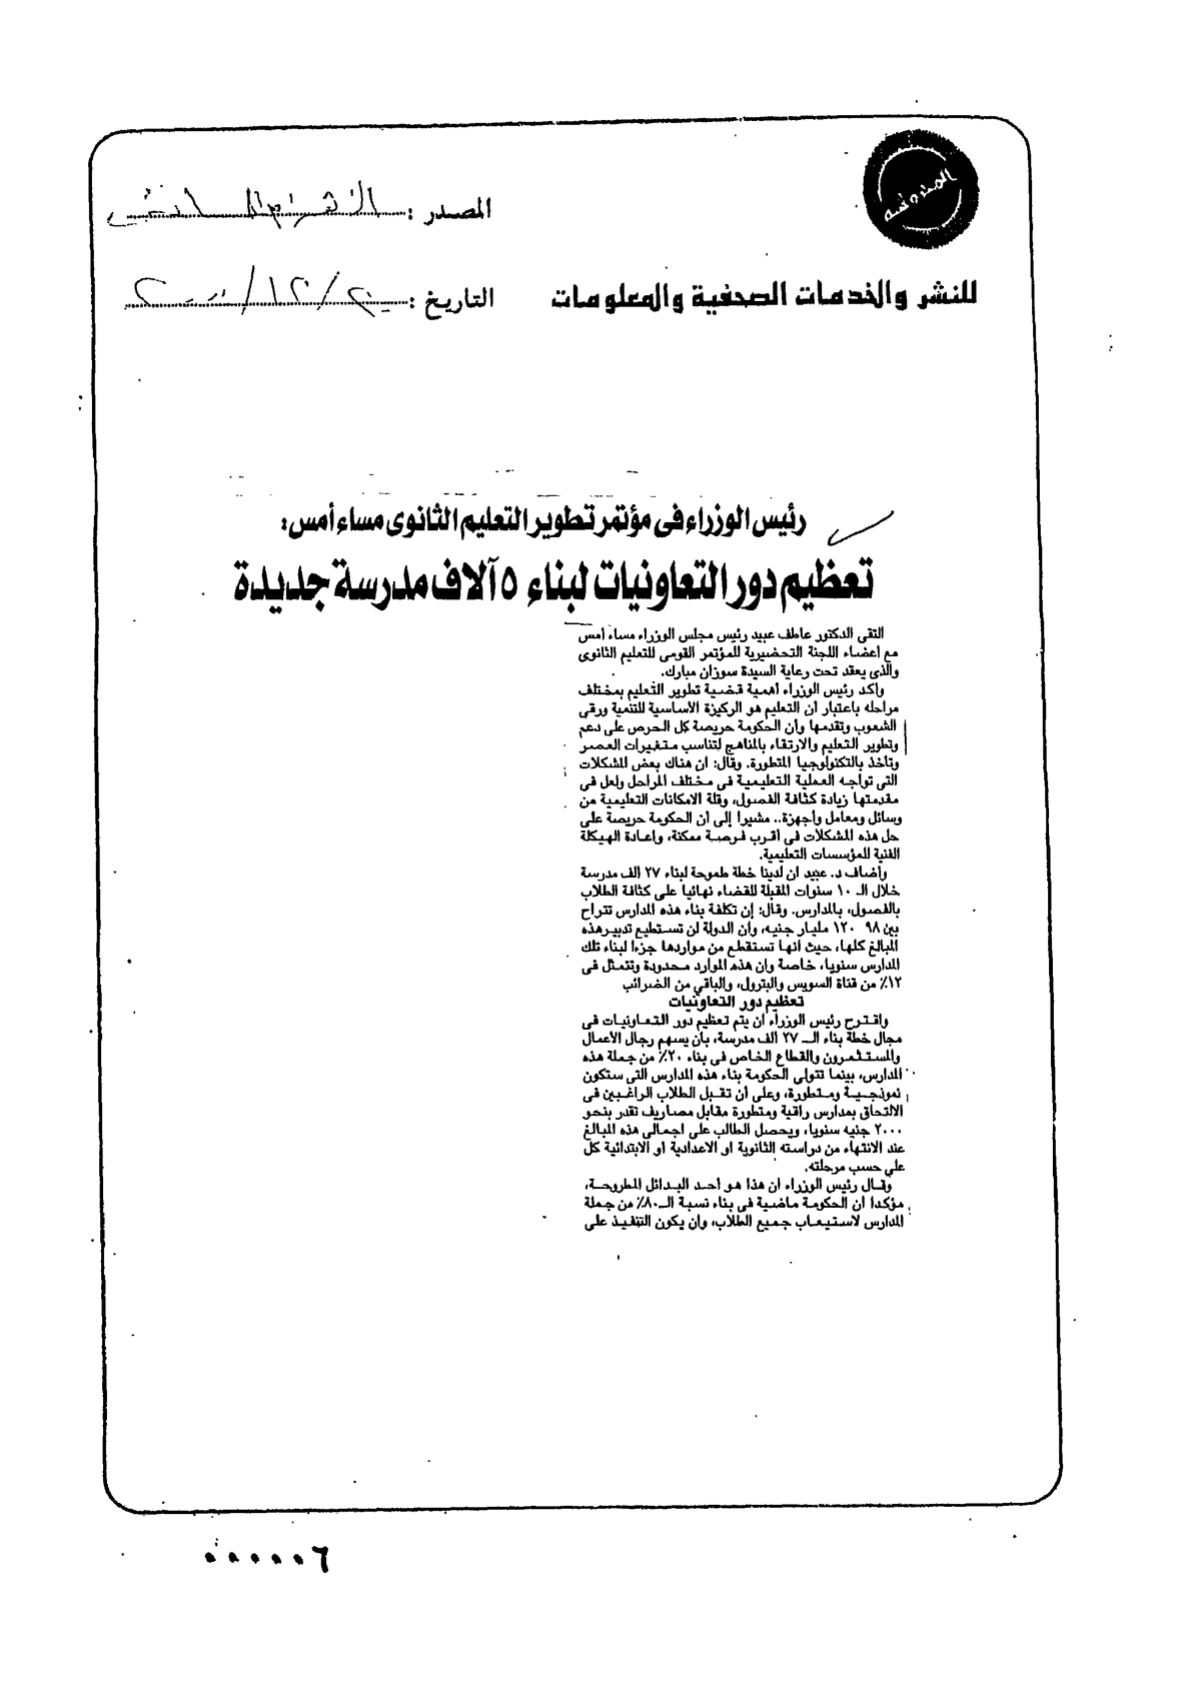 المحروسة
المصدر : الأهرام المسائى
للنشر والخدمات الصحفية والمعلومات
التاريخ : ٢٠/١٢/٢٠٠٠
رئيس الوزراء فى مؤتمر تطوير التعليم الثانوى مساء أمس:
تعظيم دور التعاونيات لبناء ٥ آلاف مدرسة جديدة
التقى الدكتور عاطف عبيد رئيس مجلس الوزراء مساء أمس
مع أعضاء اللجنة التحضيرية للمؤتمر القومى للتعليم الثانوى
والذى يعقد تحت رعاية السيدة سوزان مبارك.
وأكد رئيس الوزراء أهمية قضية تطوير التعليم بمختلف
مراحله باعتبار أن التعليم هو الركيزة الأساسية للتنمية ورقى
الشعوب وتقدمها وأن الحكومة حريصة كل الحرص على دعم
وتطوير التعليم والارتقاء بالمناهج لتناسب متغيرات العصر
وتأخذ بالتكنولوجيا المتطورة. وقال: ان هناك بعض المشكلات
التى تواجه العملية التعليمية فى مختلف المراحل ولعل فى
مقدمتها زيادة كثافة الفصول، وقلة الامكانات التعليمية من
وسائل ومعامل وأجهزة.. مشيرا إلى أن الحكومة حريصة على
حل هذه المشكلات فى أقرب فرصة ممكنة، وإعادة الهيكلة
الفنية للمؤسسات التعليمية.
وأضاف د. عبيد ان لدينا خطة طموحة لبناء ٢٧ ألف مدرسة
خلال الـ ١٠ سنوات المقبلة للقضاء نهائيا على كثافة الطلاب
بالفصول، بالمدارس. وقال: إن تكلفة بناء هذه المدارس تتراح
بين ٩٨ ١٢٠ مليار جنيه، وان الدولة لن تستطيع تدبير هذه
المبالغ كلها، حيث انها تستقطع من مواردها جزءا لبناء تلك
المدارس سنويا، خاصة وان هذه الموارد محدودة وتتمثل فى
١٢٪ من قناة السويس والبترول، والباقي من الضرائب
تعظيم دور التعاونيات
واقترح رئيس الوزراء ان يتم تعظيم دور التعاونيات فى
مجال خطة بناء الـ ٢٧ الف مدرسة، بأن يسهم رجال الأعمال
والمستثمرون والقطاع الخاص فى بناء ٢٠٪ من جملة هذه
المدارس، بينما تتولى الحكومة بناء هذه المدارس التى ستكون
نموذجية ومتطورة، وعلى أن تقبل الطلاب الراغبين فى
الالتحاق بمدارس راقية ومتطورة مقابل مصاريف تقدر بنحو
٢٠٠٠ جنيه سنويا، ويحصل الطالب على اجمالى هذه المبالغ
عند الانتهاء من دراسته الثانوية او الاعدادية أو الابتدائية كل
على حسب مرحلته.
وقال رئيس الوزراء ان هذا هو أحد البدائل المطروحة،
مؤكدا ان الحكومة ماضية فى بناء نسبة الـ ٨٠٪ من جملة
المدارس لاستيعاب جميع الطلاب، وان يكون التنفيذ على
٠٠٠٠٠٦